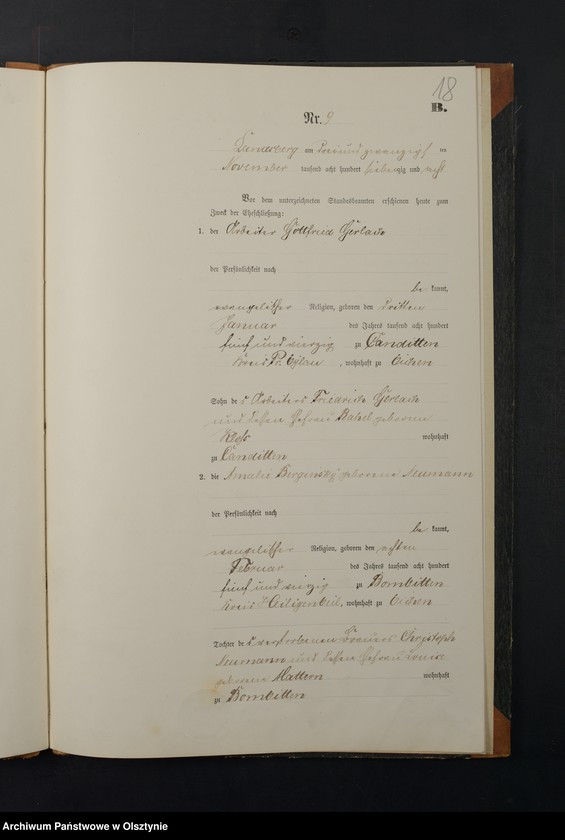 18
B.
Nr. 9
Landsberg am drei und zwanzigsten
November tausend acht hundert siebenzig und acht
Vor dem unterzeichneten Standesbeamten erschienen heute zum
Zweck der Eheschließung:
1. der Arbeiter Gottfried Gerlach
der Persönlichkeit nach
be kannt,
evangelischer Religion, geboren den dritten
Januar des Jahres tausend acht hundert
fünf und vierzig zu Canditten
Kreis Pr. Eylau, wohnhaft zu Eichen
Sohn des Arbeiters Friedrich Gerlach
und dessen Ehefrau geborene
wohnhaft
zu Canditten
2. die Amalie geborene Neumann
der Persönlichkeit nach
be kannt,
evangelischer Religion, geboren den achten
Februar des Jahres tausend acht hundert
fünf und vierzig zu Bombitten
Kreis Heiligenbeil, wohnhaft zu Eichen
Tochter des verstorbenen Christoph
Neumann und dessen Ehefrau Louise
geborene Mattern wohnhaft
zu Bombitten
Archiwum Państwowe w Olsztynie